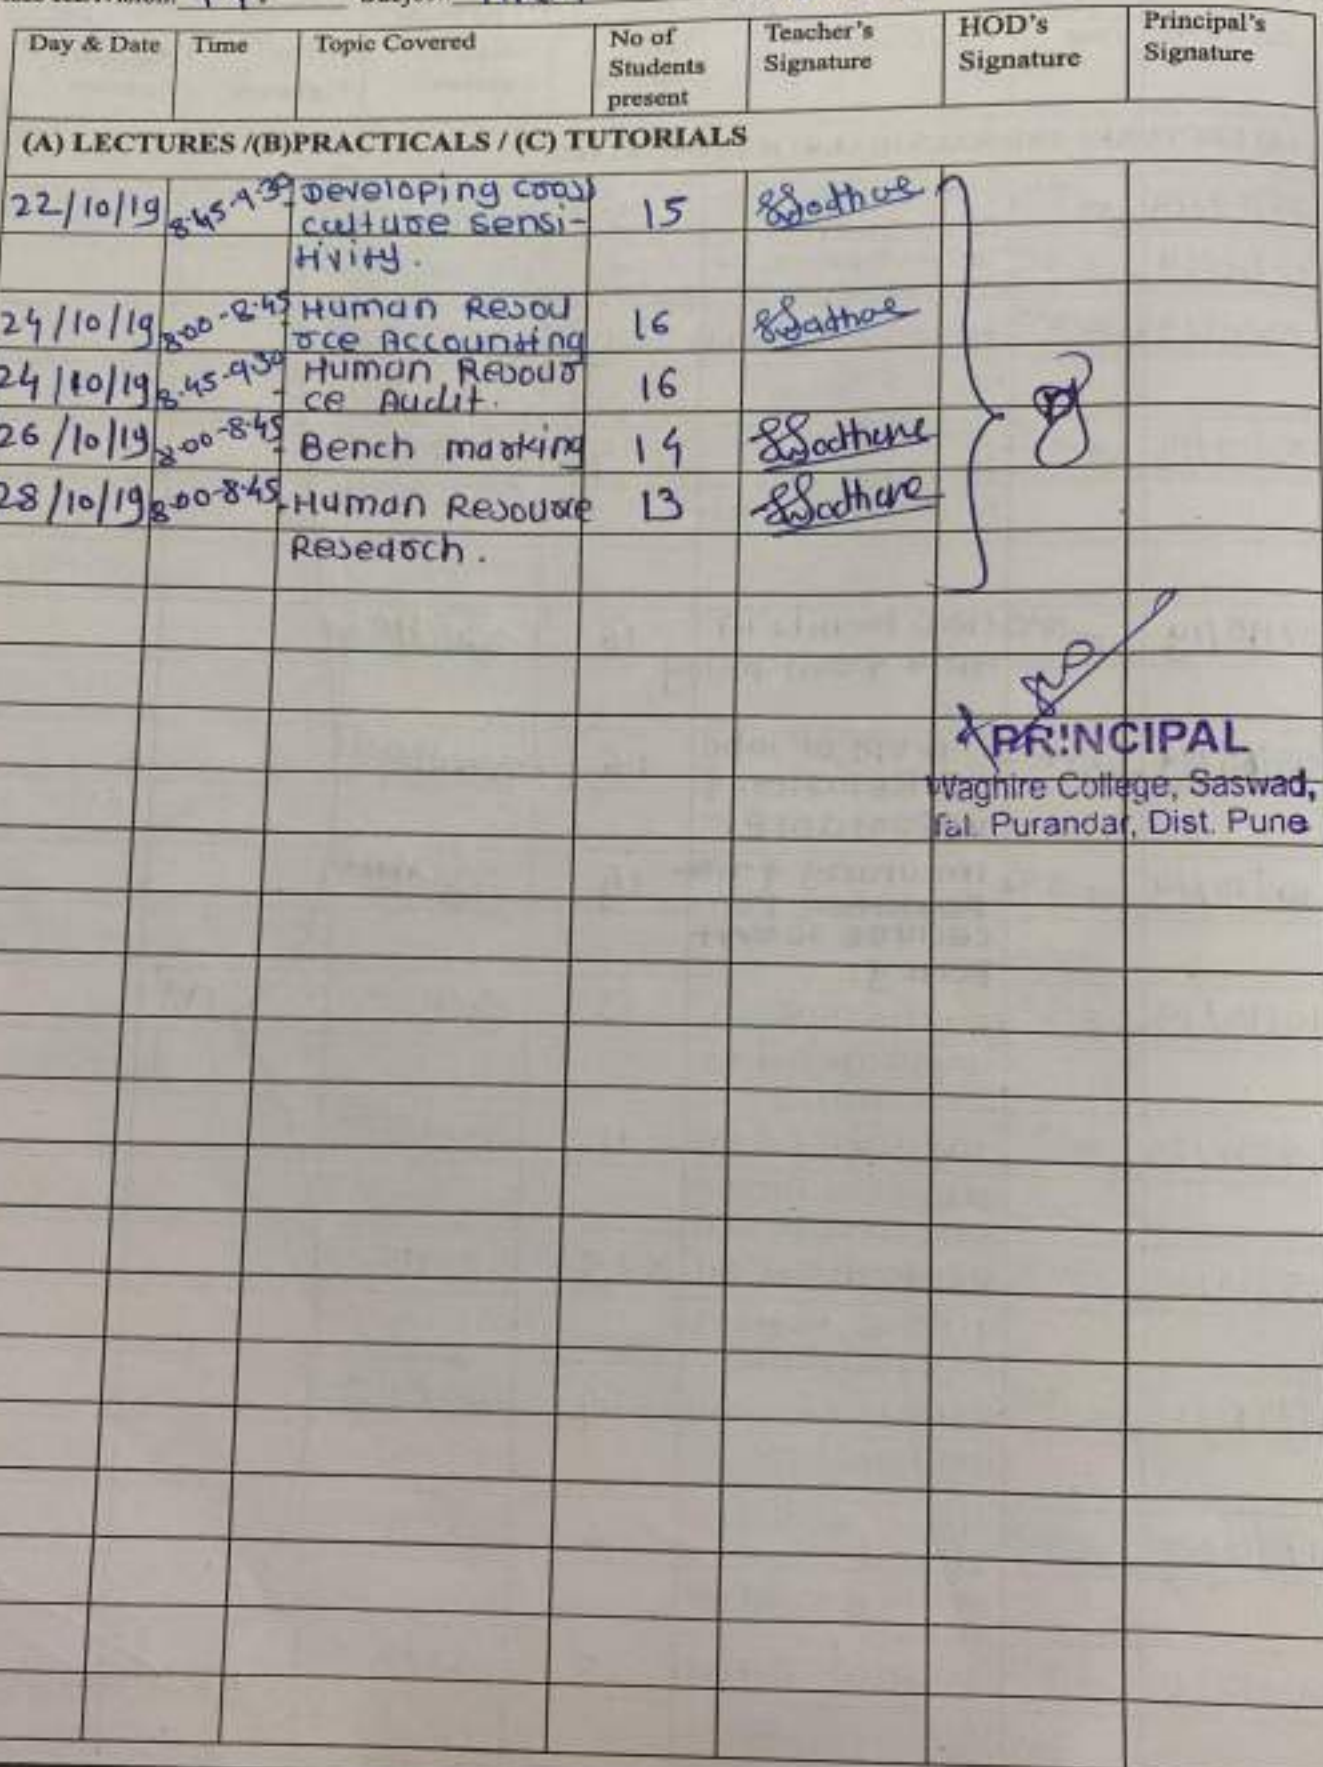 Day & Date Time Topic Covered No of Students present Teacher's Signature HOD's Signature Principal's Signature
(A) LECTURES /(B)PRACTICALS / (C) TUTORIALS
22/10/19 8.45-9.30 Developing coss 15
culture sensi-
tivity.
24/10/19 8.00-8.45 Human Resou 16
rce Accounting
24/10/19 8.45-9.30 Human Resour 16
ce Audit.
26/10/19 8.00-8.45 Bench marking 14
28/10/19 8.00-8.45 Human Resource 13
Research.
PRINCIPAL
Waghire College, Saswad,
Tal. Purandar, Dist. Pune